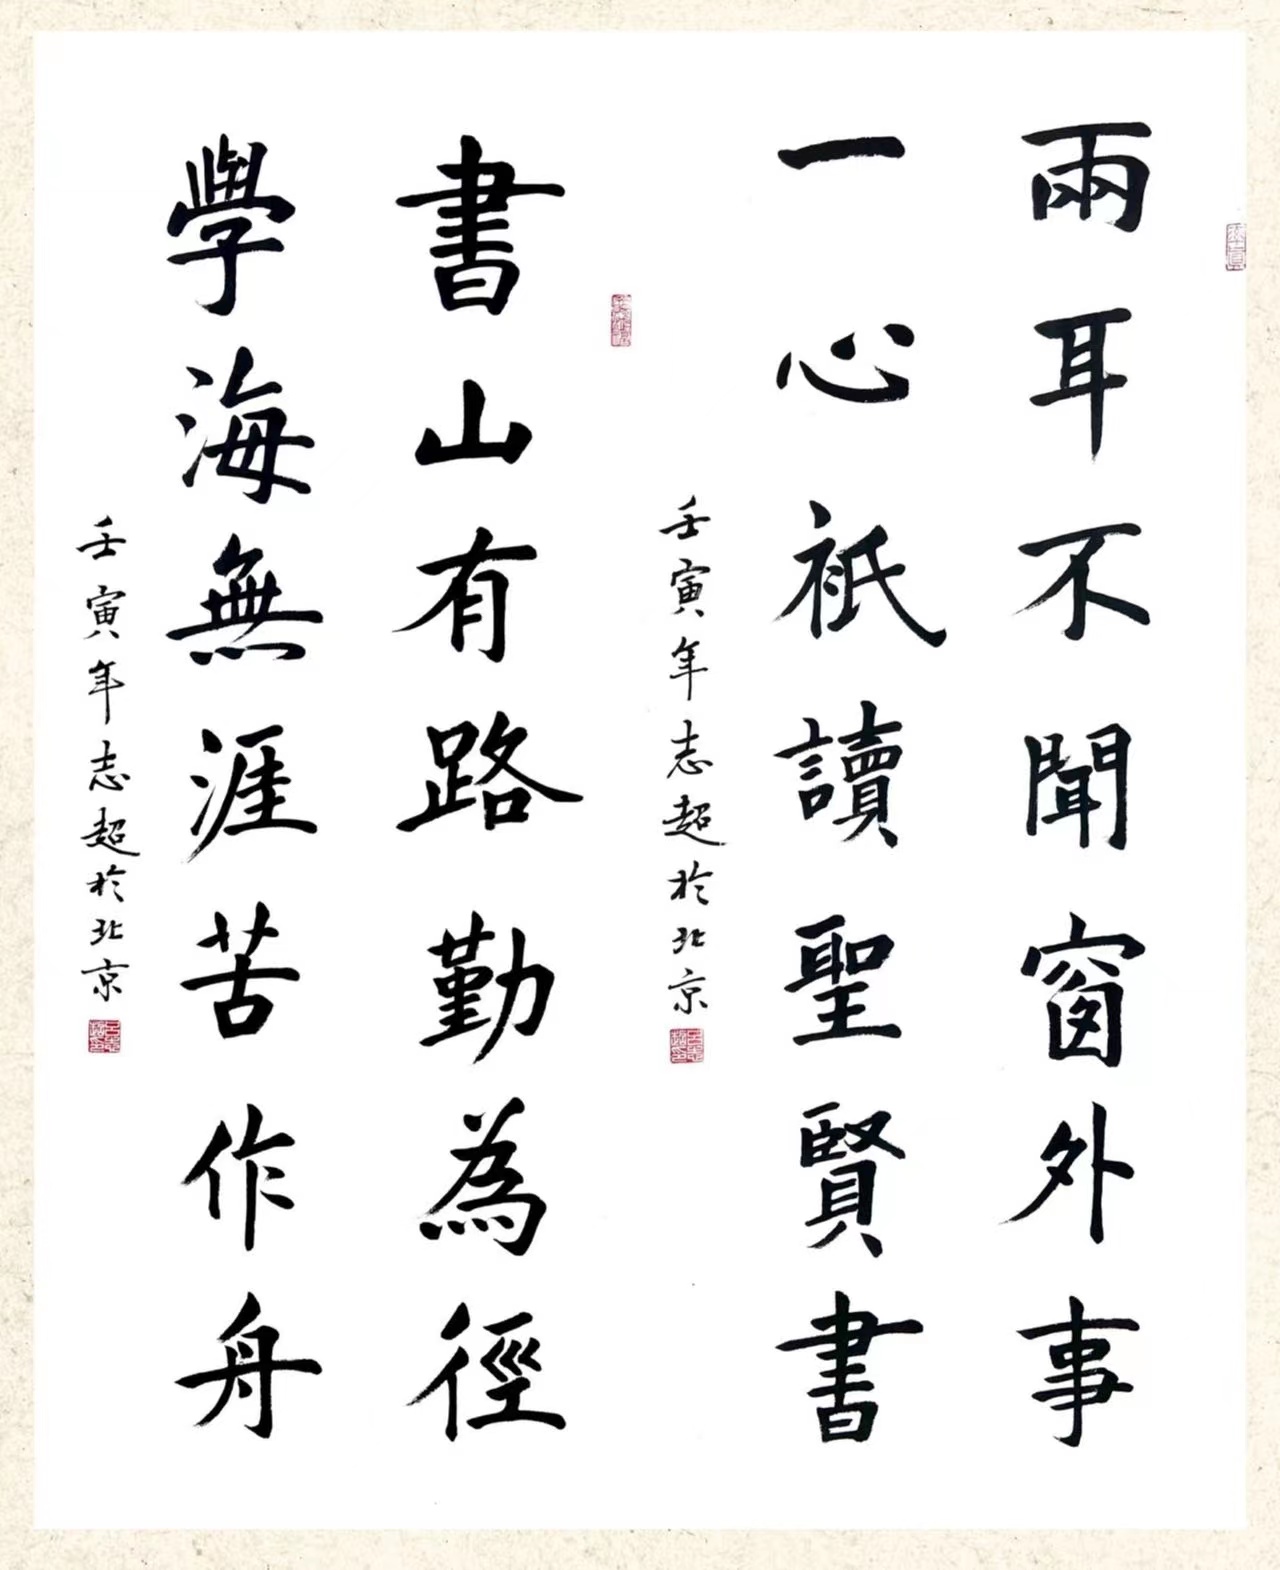 兩耳不聞窗外事
一心祇讀聖賢書
壬寅年志超於北京
書山有路勤為徑
學海無涯苦作舟
壬寅年志超於北京